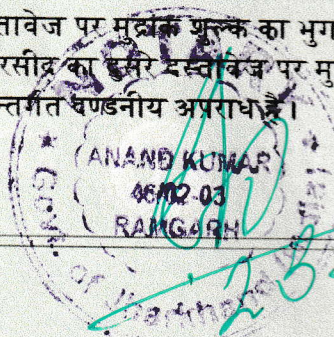 तावेज पर मुद्रांक शुल्क का भुग
रसीद का दूसरे दस्तावेज पर मु
न्तर्गत दण्डनीय अपराध है।
NOTARY
ANAND KUMAR
RAMGARH
Govt. of Jharkhand